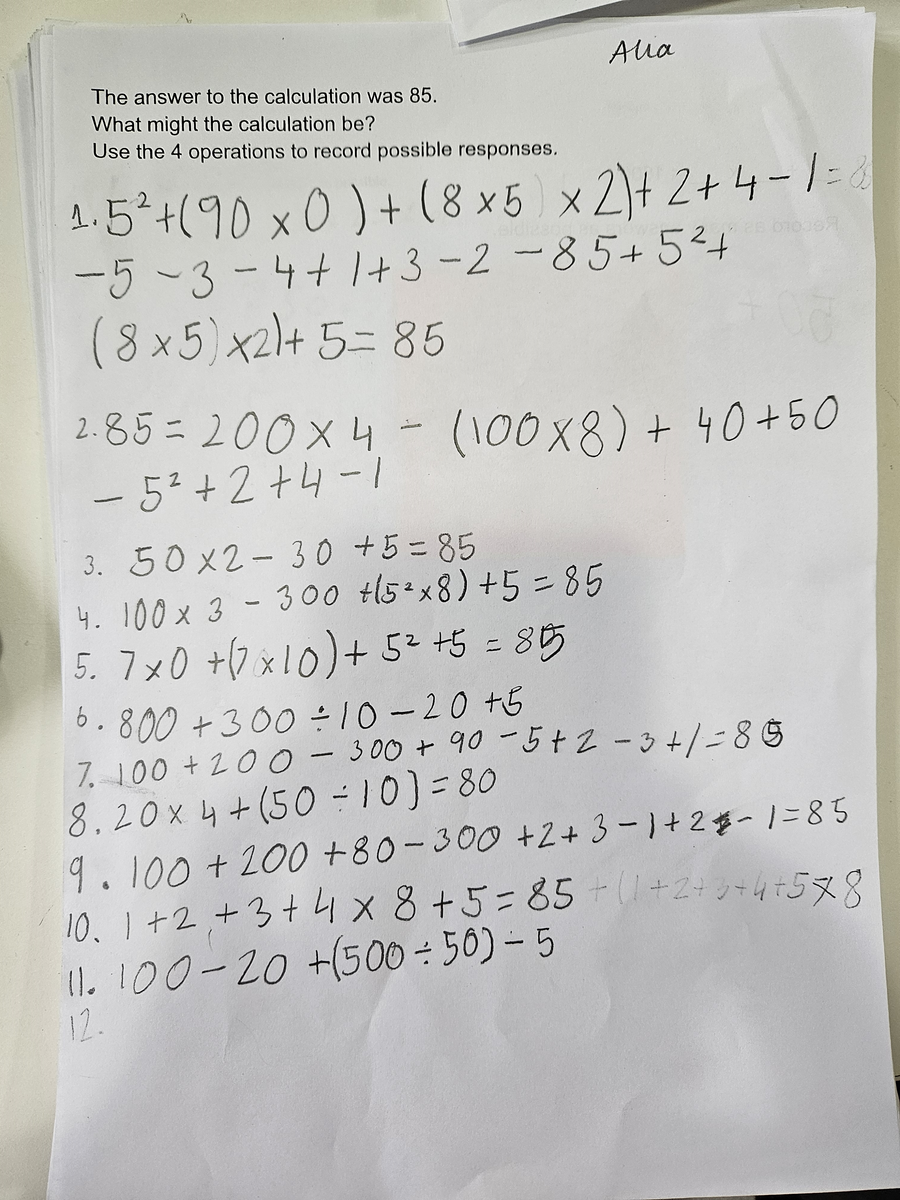 Alia
The answer to the calculation was 85.
What might the calculation be?
Use the 4 operations to record possible responses.
1. 5²+(90 x 0) + (8 x 5) x 2)+ 2 + 4 - 1 = 8
- 5 - 3 - 4 + 1 + 3 - 2 - 85 + 5² +
(8 x 5) x 2)+ 5 = 85
2. 85 = 200 x 4 - (100 x 8) + 40 + 50
- 5² + 2 + 4 - 1
3. 50 x 2 - 30 + 5 = 85
4. 100 x 3 - 300 +(5² x 8) + 5 = 85
5. 7 x 0 +(7 x 10) + 5² + 5 = 85
6. 800 + 300 ÷ 10 - 20 + 5
7. 100 + 200 - 300 + 90 - 5 + 2 - 3 + 1 = 85
8. 20 x 4 + (50 ÷ 10) = 80
9. 100 + 200 + 80 - 300 + 2 + 3 - 1 + 2 - 1 = 85
10. 1 + 2 + 3 + 4 x 8 + 5 = 85 + (1 + 2 + 3 + 4 + 5 x 8
11. 100 - 20 +(500 ÷ 50) - 5
12.